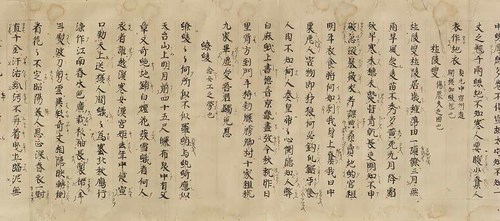 丈之毯千兩絲地不知寒人要暖少奪人
衣作地衣 貞元中宣州進開樣加絲毯
杜陵叟 傷農夫之困也
杜陵叟杜陵居歲種薄田一頃餘三月無
雨旱風起麥苗不秀多黃死九月降霜
秋早寒禾穗未熟皆青乾長吏明知不申
破急斂暴徵求考課典桑賣地納官租
明年衣食將何如剝我身上帛奪我口中
粟虐人害物即豺狼何必鈎爪鋸牙食
人肉不知何人奏皇帝々心惻隱知人弊
白麻紙上書德音京畿盡放今秋稅昨日
里胥方到門手持勅牒牓鄉村十家租稅
九家畢虛受吾君蠲免恩
繚綾 念女工之勞也
繚綾々々何所似不似羅綃與紈綺應似
天台山上明月前四十五尺瀑布泉中有文
章又奇絶地鋪白煙花簇雪織者何人
衣者誰越溪寒女漢宮姬去年中使宣
口勅天上取樣人間織々為塞北秋鴈行
染作江南春水色廣裁衫袖長製裙金
斗熨波刀剪雲異彩奇文相隱映轉側
看花々不定昭陽舞人恩正深春衣一對
直千金汗沾粉污不再著曳土蹋泥無